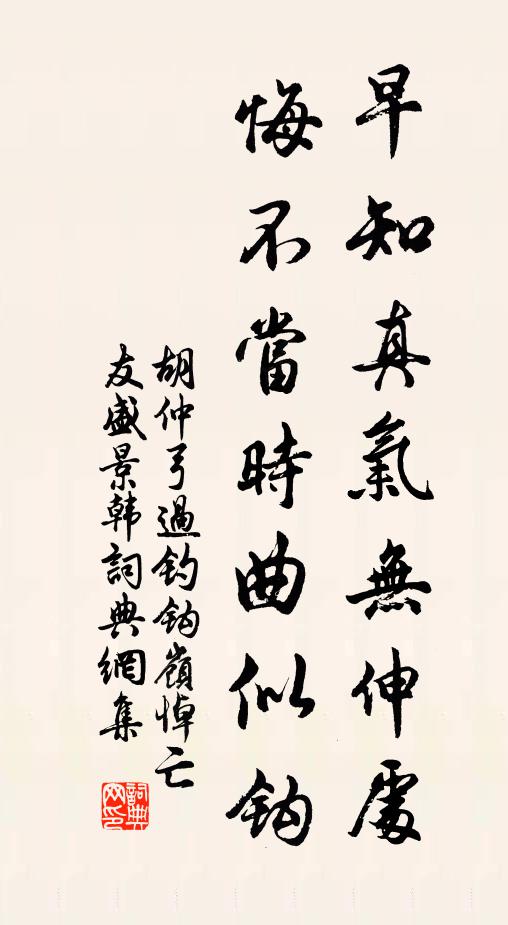 早知真氣無伸處
悔不當時曲似鈎
胡仲弓過釣鈎嶺悼亡
友盛景韩詞典網集
詞典网印